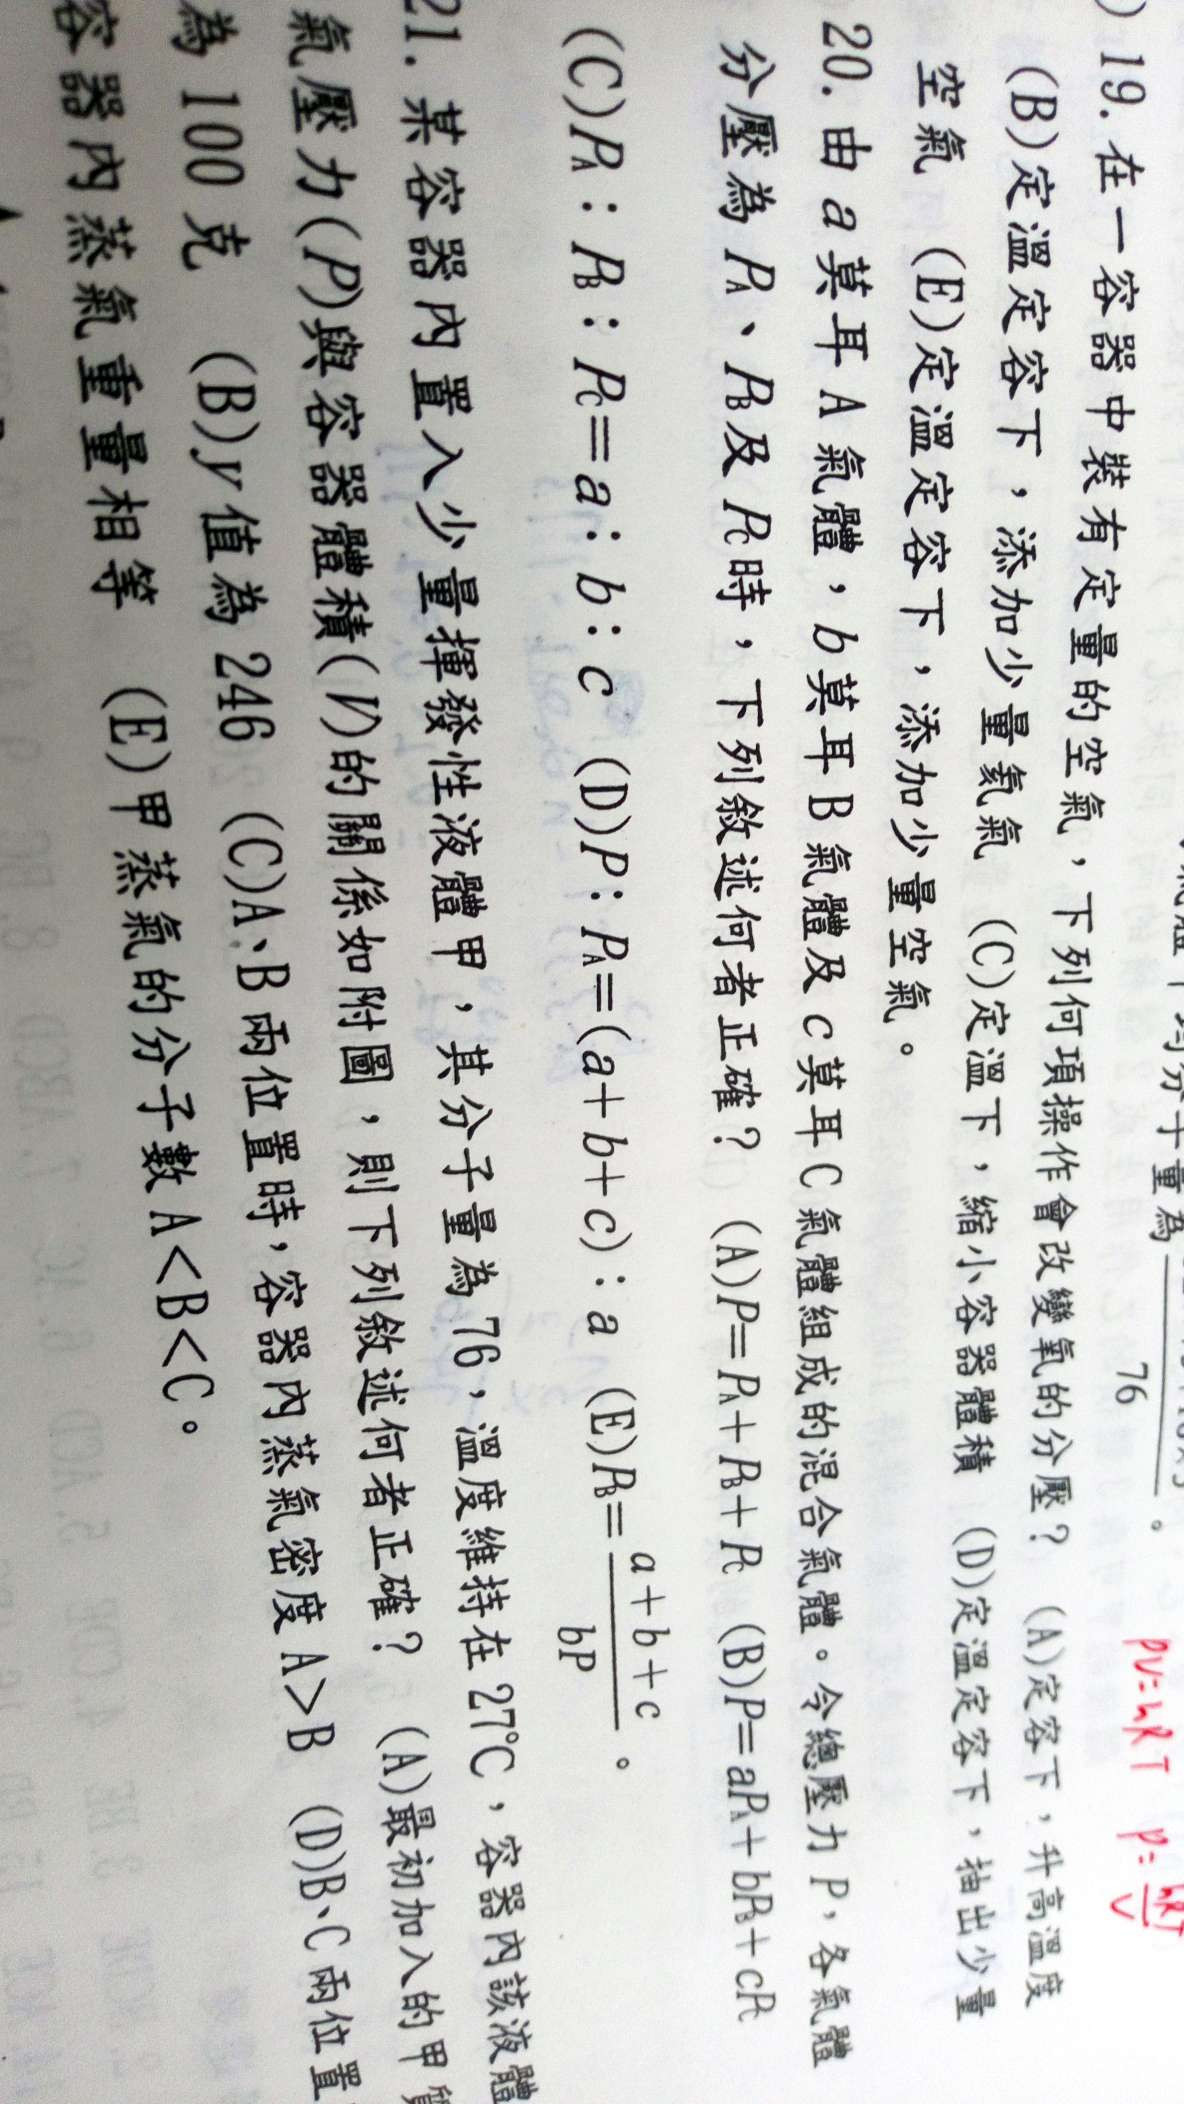 氣體平均分子量為
76
。
PV=nRT P=nRT/V
) 19. 在一容器中裝有定量的空氣，下列何項操作會改變氧的分壓？ (A)定容下，升高溫度
(B)定溫定容下，添加少量氦氣 (C)定溫下，縮小容器體積 (D)定溫定容下，抽出少量
空氣 (E)定溫定容下，添加少量空氣。
20. 由 a 莫耳 A 氣體，b 莫耳 B 氣體及 c 莫耳 C 氣體組成的混合氣體。令總壓力 P，各氣體
分壓為 PA、PB及 PC時，下列敘述何者正確？ (A)P=PA+PB+PC (B)P=aPA+bPB+cPC
(C)PA：PB：PC=a：b：c (D)P：PA=(a+b+c)：a (E)PB=a+b+c/bP。
21. 某容器內置入少量揮發性液體甲，其分子量為 76，溫度維持在 27℃，容器內該液體
氣壓力(P)與容器體積(V)的關係如附圖，則下列敘述何者正確？ (A)最初加入的甲質
為 100 克 (B)y 值為 246 (C)A、B 兩位置時，容器內蒸氣密度 A>B (D)B、C 兩位置
容器內蒸氣重量相等 (E)甲蒸氣的分子數 A<B<C。